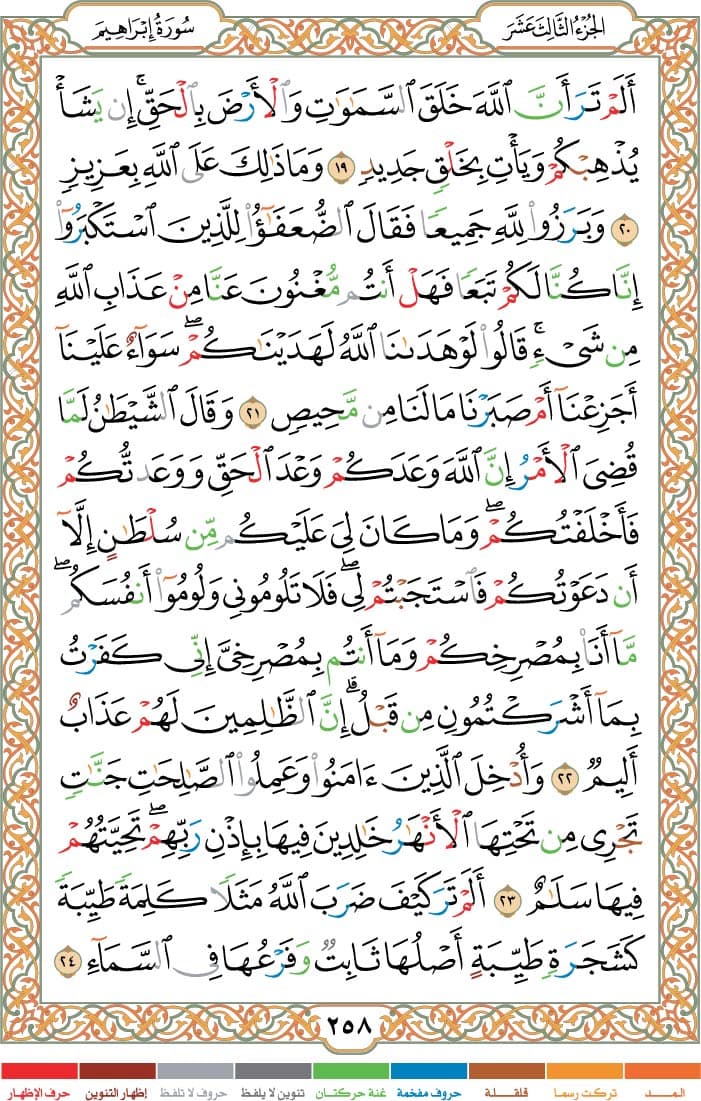 الجُزْءُ الثَّالِثَ عَشَرَ
سُورَةُ إِبْرَاهِيمَ
أَلَمْ تَرَ أَنَّ ٱللَّهَ خَلَقَ ٱلسَّمَٰوَٰتِ وَٱلْأَرْضَ بِٱلْحَقِّۚ إِن يَشَأْ
يُذْهِبْكُمْ وَيَأْتِ بِخَلْقٍ جَدِيدٍ ١٩ وَمَا ذَٰلِكَ عَلَى ٱللَّهِ بِعَزِيزٍ
٢٠ وَبَرَزُوا۟ لِلَّهِ جَمِيعًا فَقَالَ ٱلضُّعَفَٰٓؤُا۟ لِلَّذِينَ ٱسْتَكْبَرُوٓا۟
إِنَّا كُنَّا لَكُمْ تَبَعًا فَهَلْ أَنتُم مُّغْنُونَ عَنَّا مِنْ عَذَابِ ٱللَّهِ
مِن شَىْءٍۚ قَالُوا۟ لَوْ هَدَىٰنَا ٱللَّهُ لَهَدَيْنَٰكُمْۖ سَوَآءٌ عَلَيْنَآ
أَجَزِعْنَآ أَمْ صَبَرْنَا مَا لَنَا مِن مَّحِيصٍ ٢١ وَقَالَ ٱلشَّيْطَٰنُ لَمَّا
قُضِىَ ٱلْأَمْرُ إِنَّ ٱللَّهَ وَعَدَكُمْ وَعْدَ ٱلْحَقِّ وَوَعَدتُّكُمْ
فَأَخْلَفْتُكُمْۖ وَمَا كَانَ لِىَ عَلَيْكُم مِّن سُلْطَٰنٍ إِلَّآ
أَن دَعَوْتُكُمْ فَٱسْتَجَبْتُمْ لِىۖ فَلَا تَلُومُونِى وَلُومُوٓا۟ أَنفُسَكُمۖ
مَّآ أَنَا۠ بِمُصْرِخِكُمْ وَمَآ أَنتُم بِمُصْرِخِىَّ إِنِّى كَفَرْتُ
بِمَآ أَشْرَكْتُمُونِ مِن قَبْلُۗ إِنَّ ٱلظَّٰلِمِينَ لَهُمْ عَذَابٌ
أَلِيمٌ ٢٢ وَأُدْخِلَ ٱلَّذِينَ ءَامَنُوا۟ وَعَمِلُوا۟ ٱلصَّٰلِحَٰتِ جَنَّٰتٍ
تَجْرِى مِن تَحْتِهَا ٱلْأَنْهَٰرُ خَٰلِدِينَ فِيهَا بِإِذْنِ رَبِّهِمْۖ تَحِيَّتُهُمْ
فِيهَا سَلَٰمٌ ٢٣ أَلَمْ تَرَ كَيْفَ ضَرَبَ ٱللَّهُ مَثَلًا كَلِمَةً طَيِّبَةً
كَشَجَرَةٍ طَيِّبَةٍ أَصْلُهَا ثَابِتٌ وَفَرْعُهَا فِى ٱلسَّمَآءِ ٢٤
٢٥٨
المــــد تركت رسما قلقـلـة حروف مفخمة غنة حركتـان تنوين لا يلفظ حروف لا تلفظ إظهار التنوين حرف الإظهار